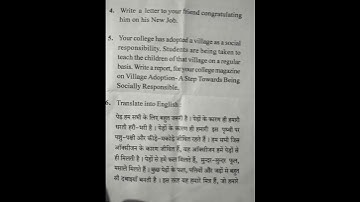 4. Write a letter to your friend congratulating
him on his New Job.
5. Your college has adopted a village as a social
responsibility. Students are being taken to
teach the children of that village on a regular
basis. Write a report, for your college magazine
on Village Adoption- A Step Towards Being
Socially Responsible.
6. Translate into English
पेड़ हम सभी के लिए बहुत जरूरी है। पेड़ों के कारण ही हमारी
धरती हरी-भरी है। पेड़ों के कारण ही हमारी इस पृथ्वी पर
पशु-पक्षी और कीड़े-मकोड़े जीवित रहते हैं। हम सभी जिस
ऑक्सीजन के कारण जीवित हैं, वह ऑक्सीजन हमें पेड़ों से
ही मिलती है। पेड़ों से हमें फल मिलते हैं, सुन्दर-सुन्दर फूल,
मसाले मिलते हैं। कुछ पेड़ों के पत्तों, पत्तियों और जड़ों से बहुत
सी दवाइयाँ बनती हैं। इस तरह वह हमारे मित्र हैं, जो हमारे